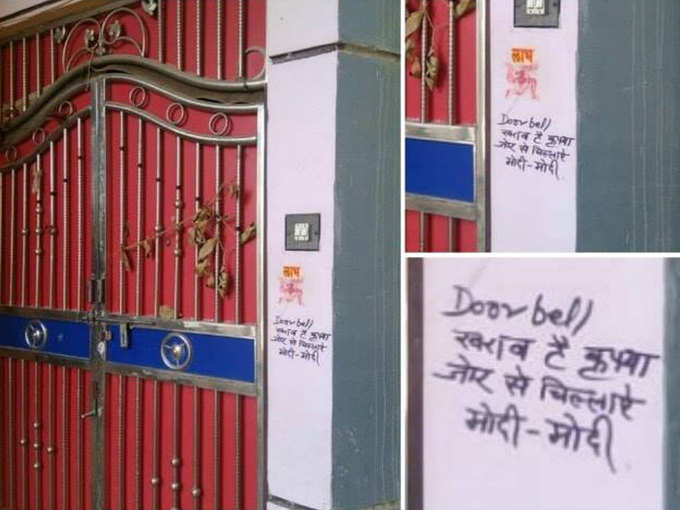 लाभ
Doorbell
खराब है कृपया
जोर से चिल्लाऐ
मोदी-मोदी
लाभ
Doorbell
खराब है कृपया
जोर से चिल्लाऐ
मोदी-मोदी
Doorbell
खराब है कृपया
जोर से चिल्लाऐ
मोदी-मोदी